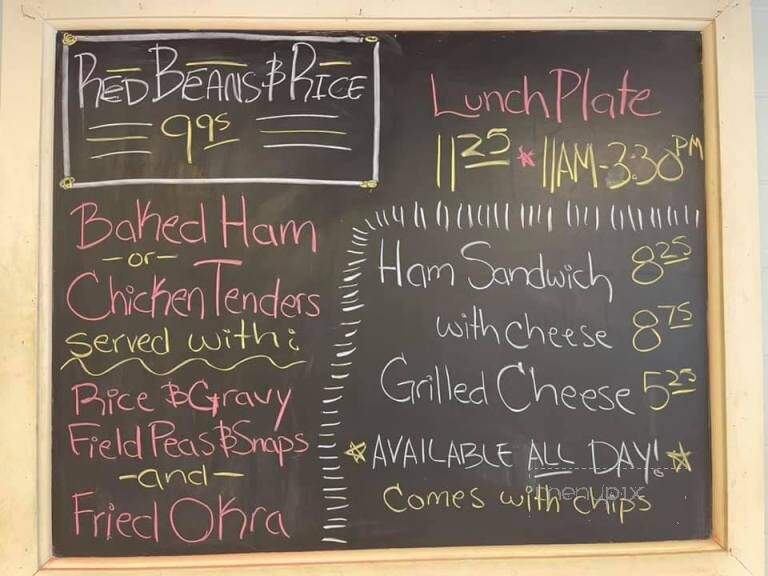 RED BEANS & RICE
9.95
Baked Ham
-or-
Chicken Tenders
served with:
Rice & Gravy
Field Peas & Snaps
-and-
Fried Okra
Lunch Plate
11 25 * 11AM-3:30PM
Ham Sandwich 8 25
with cheese 8 75
Grilled Cheese 5 25
☆ AVAILABLE ALL DAY! ☆
Comes with chips
menupix